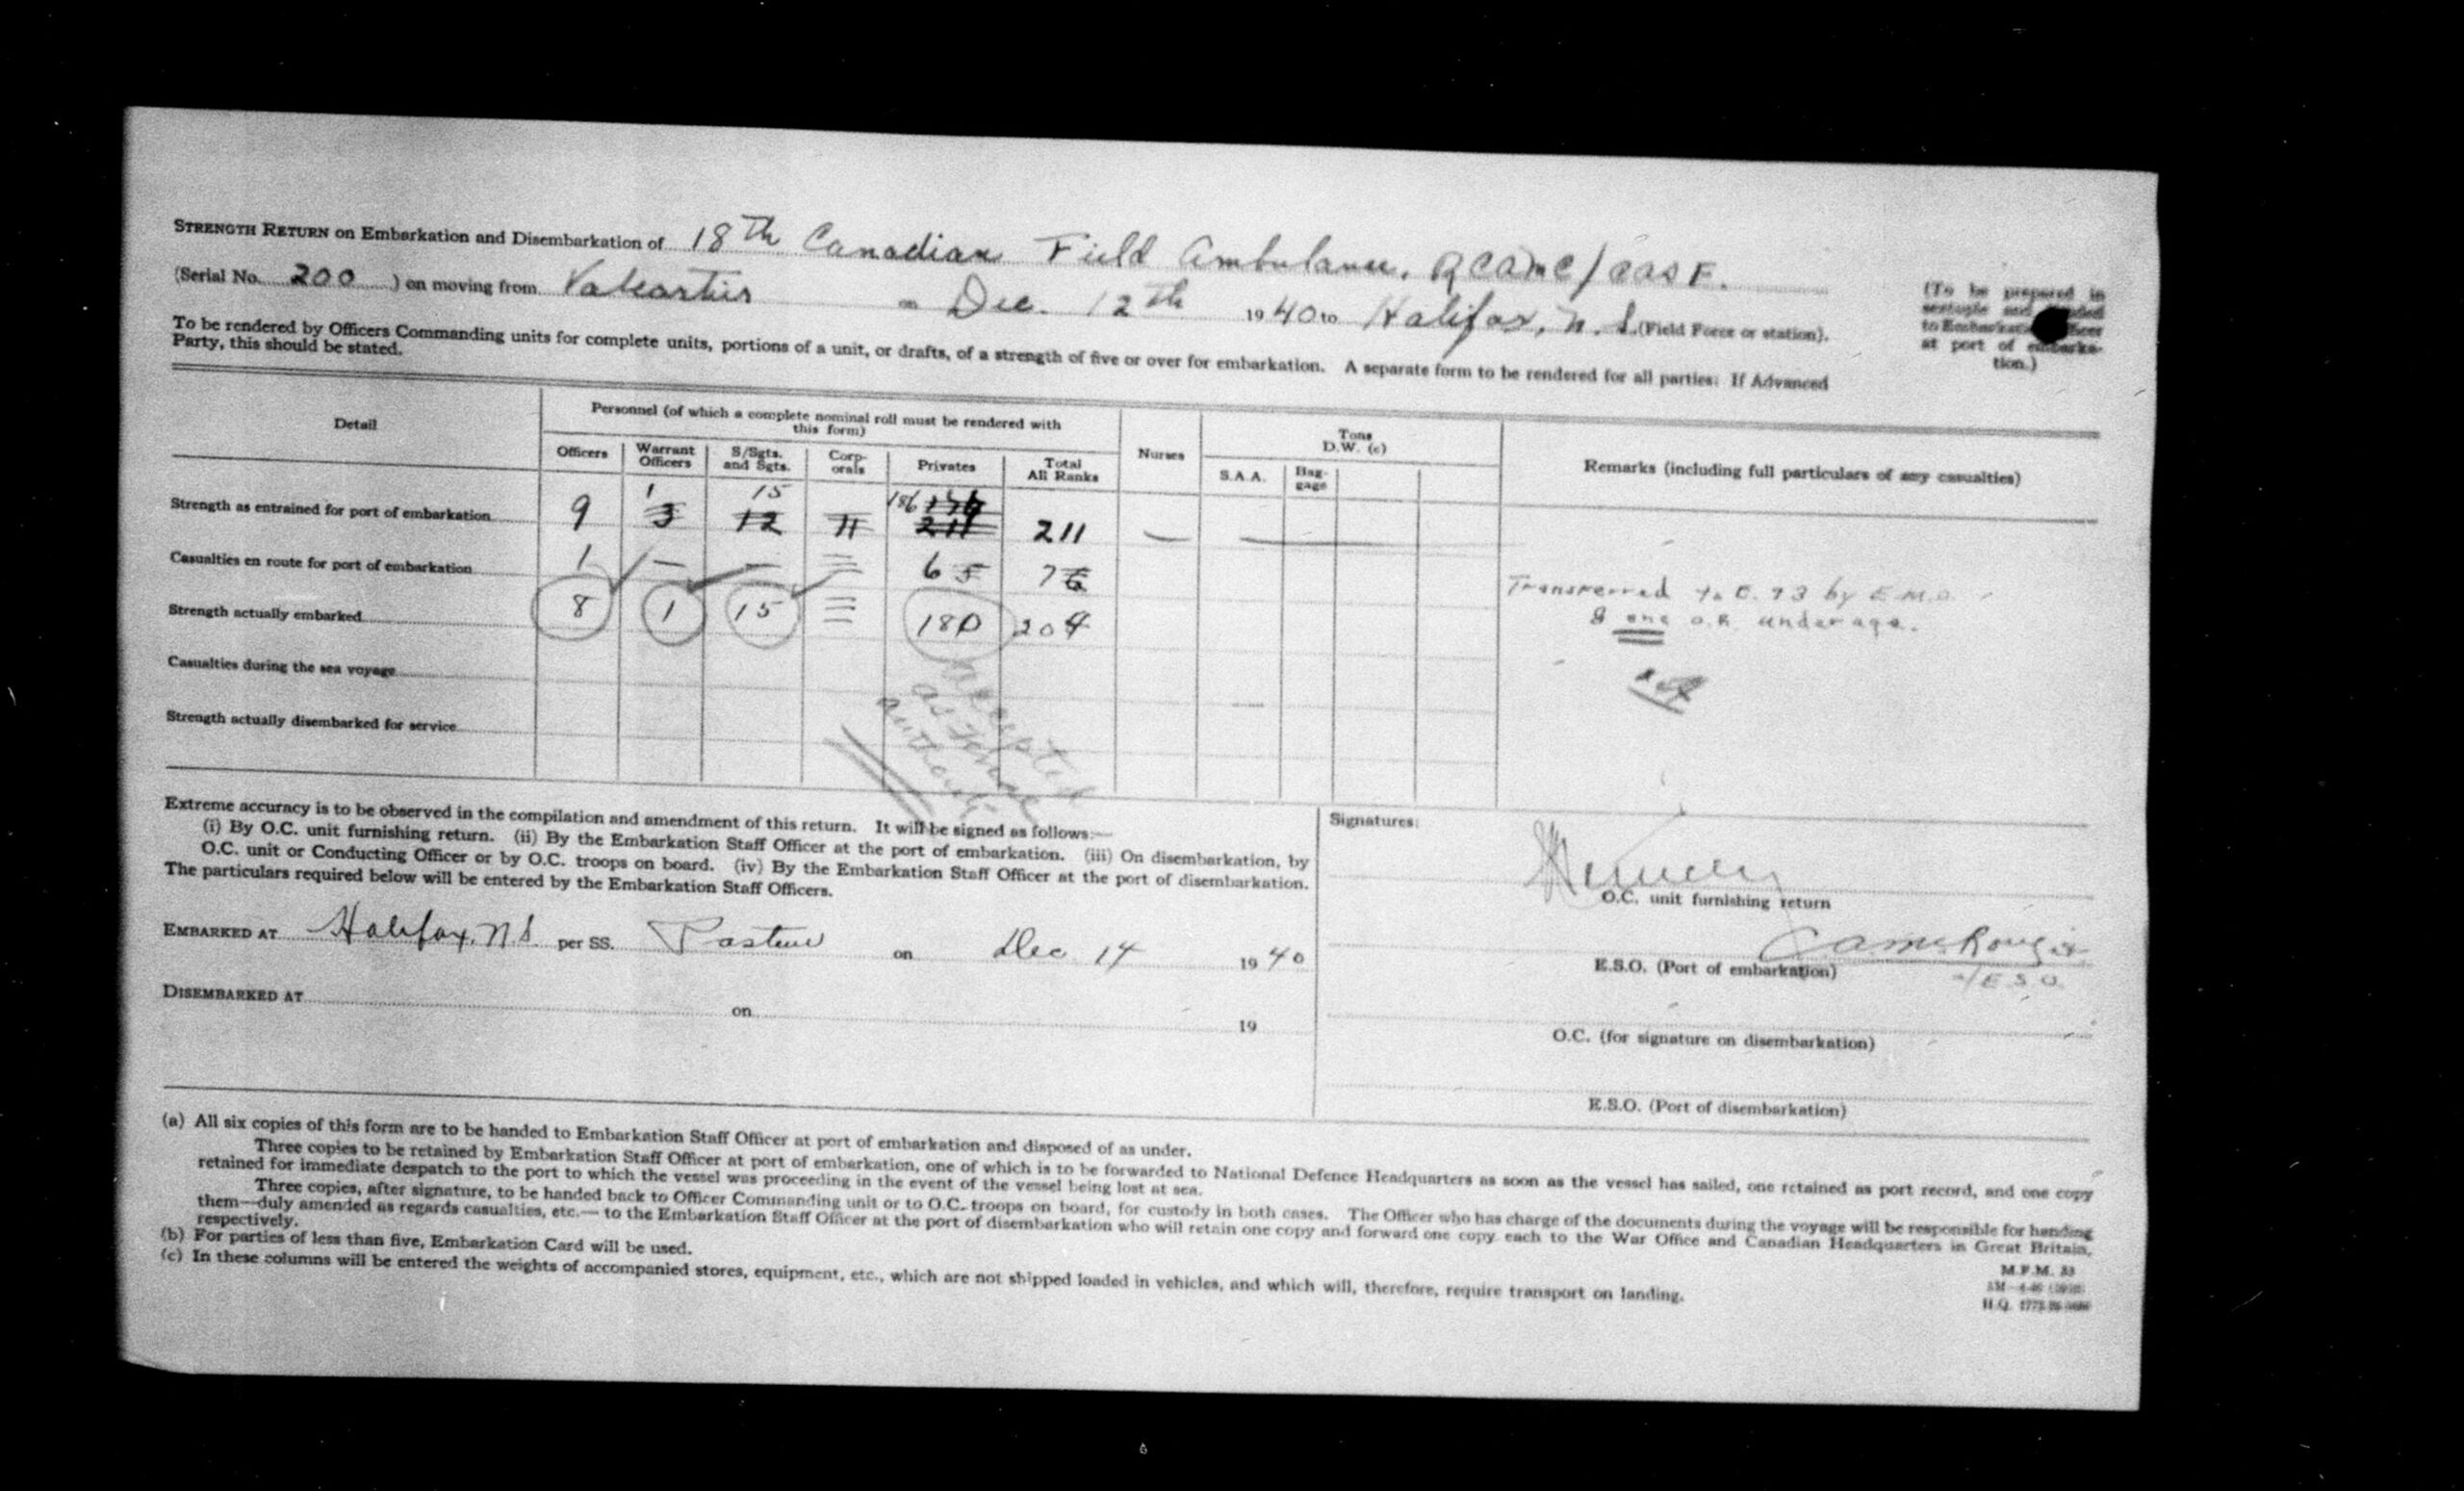 STRENGTH RETURN on Embarkation and Disembarkation of 18th Canadian Field Ambulance, RCAMC/CASF.
(Serial No. 200 ) on moving from Valcartier on Dec. 12th 1940 to Halifax, N.S. (Field Force or station).
(To be prepared in
to
at port of embarka-
tion.)
To be rendered by Officers Commanding units for complete units, portions of a unit, or drafts, of a strength of five or over for embarkation. A separate form to be rendered for all parties: If Advanced
Party, this should be stated.
Detail
Personnel (of which a complete nominal roll must be rendered with
this form)
Officers
Warrant
Officers
S/Sgts.
and Sgts.
Corp-
orals
Privates
Total
All Ranks
Nurses
Tons
D.W. (c)
S.A.A.
Bag-
gage
Remarks (including full particulars of any casualties)
1 15 186
Strength as entrained for port of embarkation 9 3 12 11 211 211 —
Casualties en route for port of embarkation 1 — — 6 5 7 6
Strength actually embarked 8 1 15 180 204
Transferred to E. 73 by E.M.O.
& one O.R. underage.
Casualties during the sea voyage
Strength actually disembarked for service
accepted
as
authority
Extreme accuracy is to be observed in the compilation and amendment of this return. It will be signed as follows:—
(i) By O.C. unit furnishing return. (ii) By the Embarkation Staff Officer at the port of embarkation. (iii) On disembarkation, by
O.C. unit or Conducting Officer or by O.C. troops on board. (iv) By the Embarkation Staff Officer at the port of disembarkation.
The particulars required below will be entered by the Embarkation Staff Officers.
EMBARKED AT Halifax, N.S. per SS. Pasteur on Dec 14 1940
DISEMBARKED AT on 19
Signatures:
O.C. unit furnishing return
E.S.O. (Port of embarkation)
a/E.S.O.
O.C. (for signature on disembarkation)
E.S.O. (Port of disembarkation)
(a) All six copies of this form are to be handed to Embarkation Staff Officer at port of embarkation and disposed of as under.
Three copies to be retained by Embarkation Staff Officer at port of embarkation, one of which is to be forwarded to National Defence Headquarters as soon as the vessel has sailed, one retained as port record, and one copy
retained for immediate despatch to the port to which the vessel was proceeding in the event of the vessel being lost at sea.
Three copies, after signature, to be handed back to Officer Commanding unit or to O.C. troops on board, for custody in both cases. The Officer who has charge of the documents during the voyage will be responsible for handing
them—duly amended as regards casualties, etc.— to the Embarkation Staff Officer at the port of disembarkation who will retain one copy and forward one copy each to the War Office and Canadian Headquarters in Great Britain,
respectively.
(b) For parties of less than five, Embarkation Card will be used.
(c) In these columns will be entered the weights of accompanied stores, equipment, etc., which are not shipped loaded in vehicles, and which will, therefore, require transport on landing.
M.F.M. 33
H.Q.